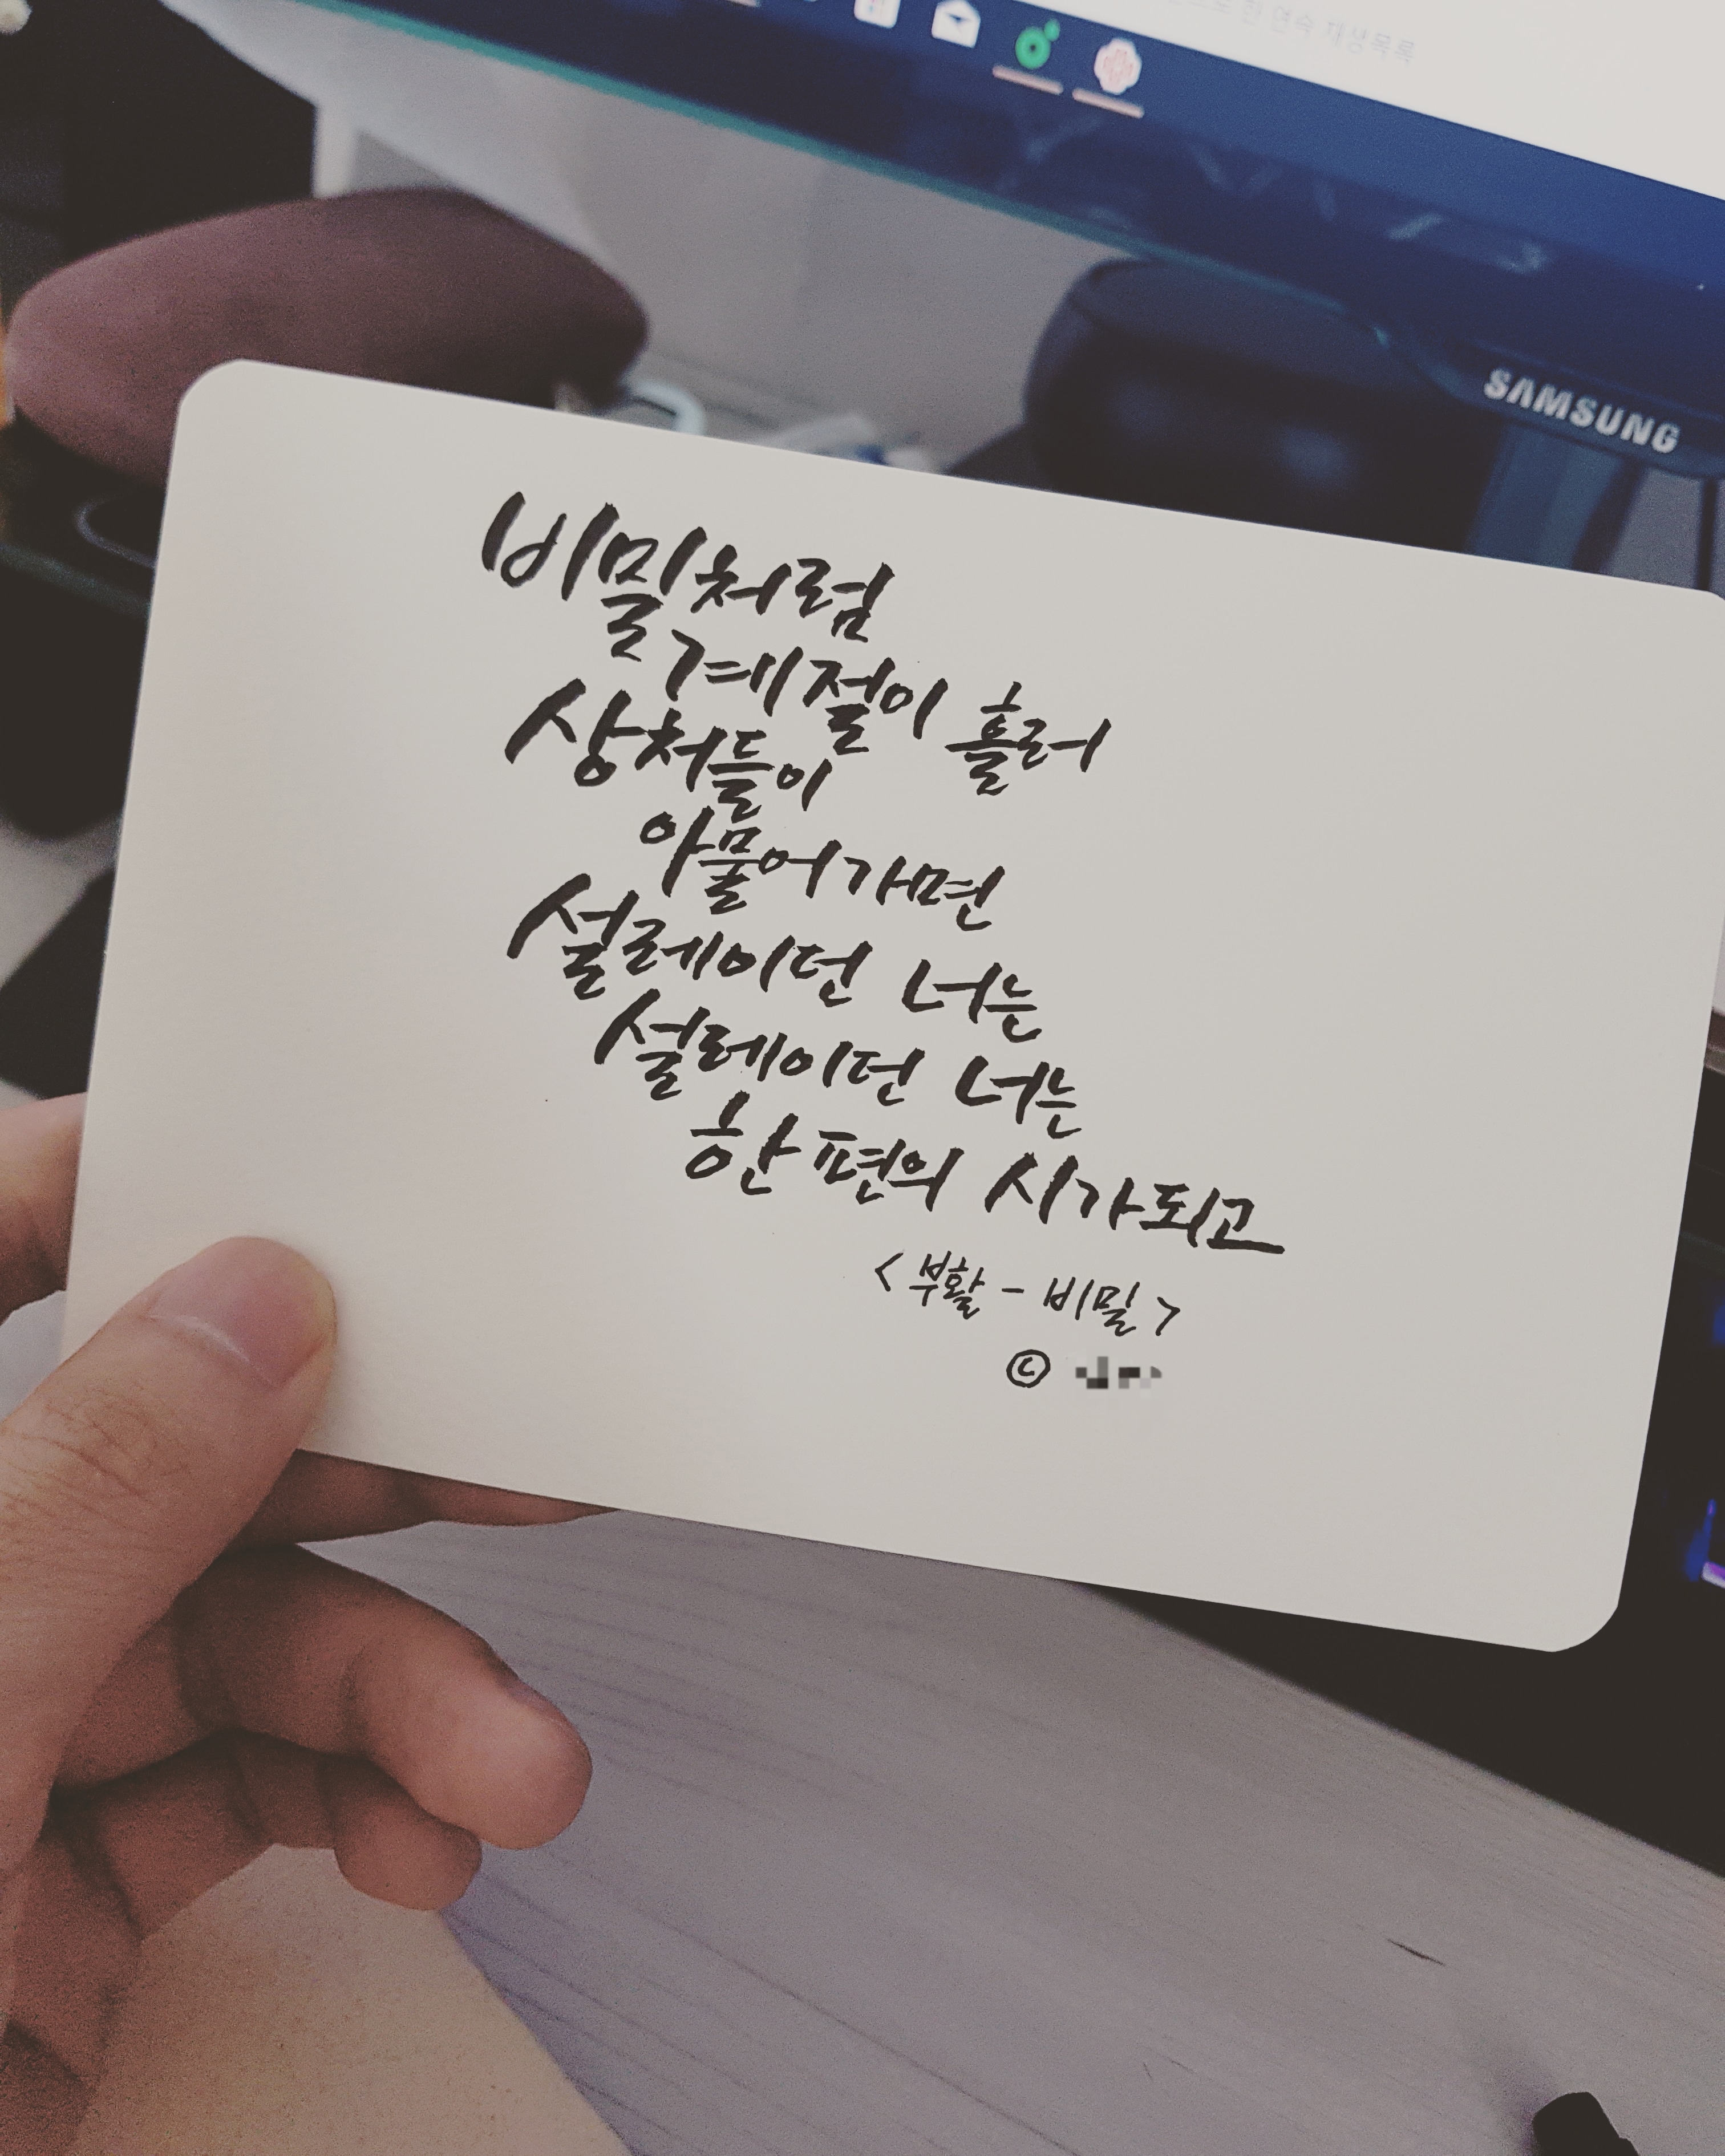 한 연속 재생목록
SAMSUNG
비밀처럼
계절이 흘러
상처들이
아물어가면
설레이던 너는
설레이던 너는
한 편의 시가되고
<부활 - 비밀>
©